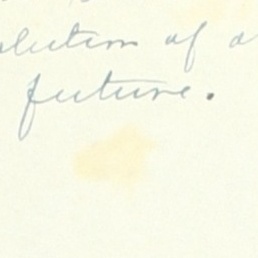 olution of a
future.